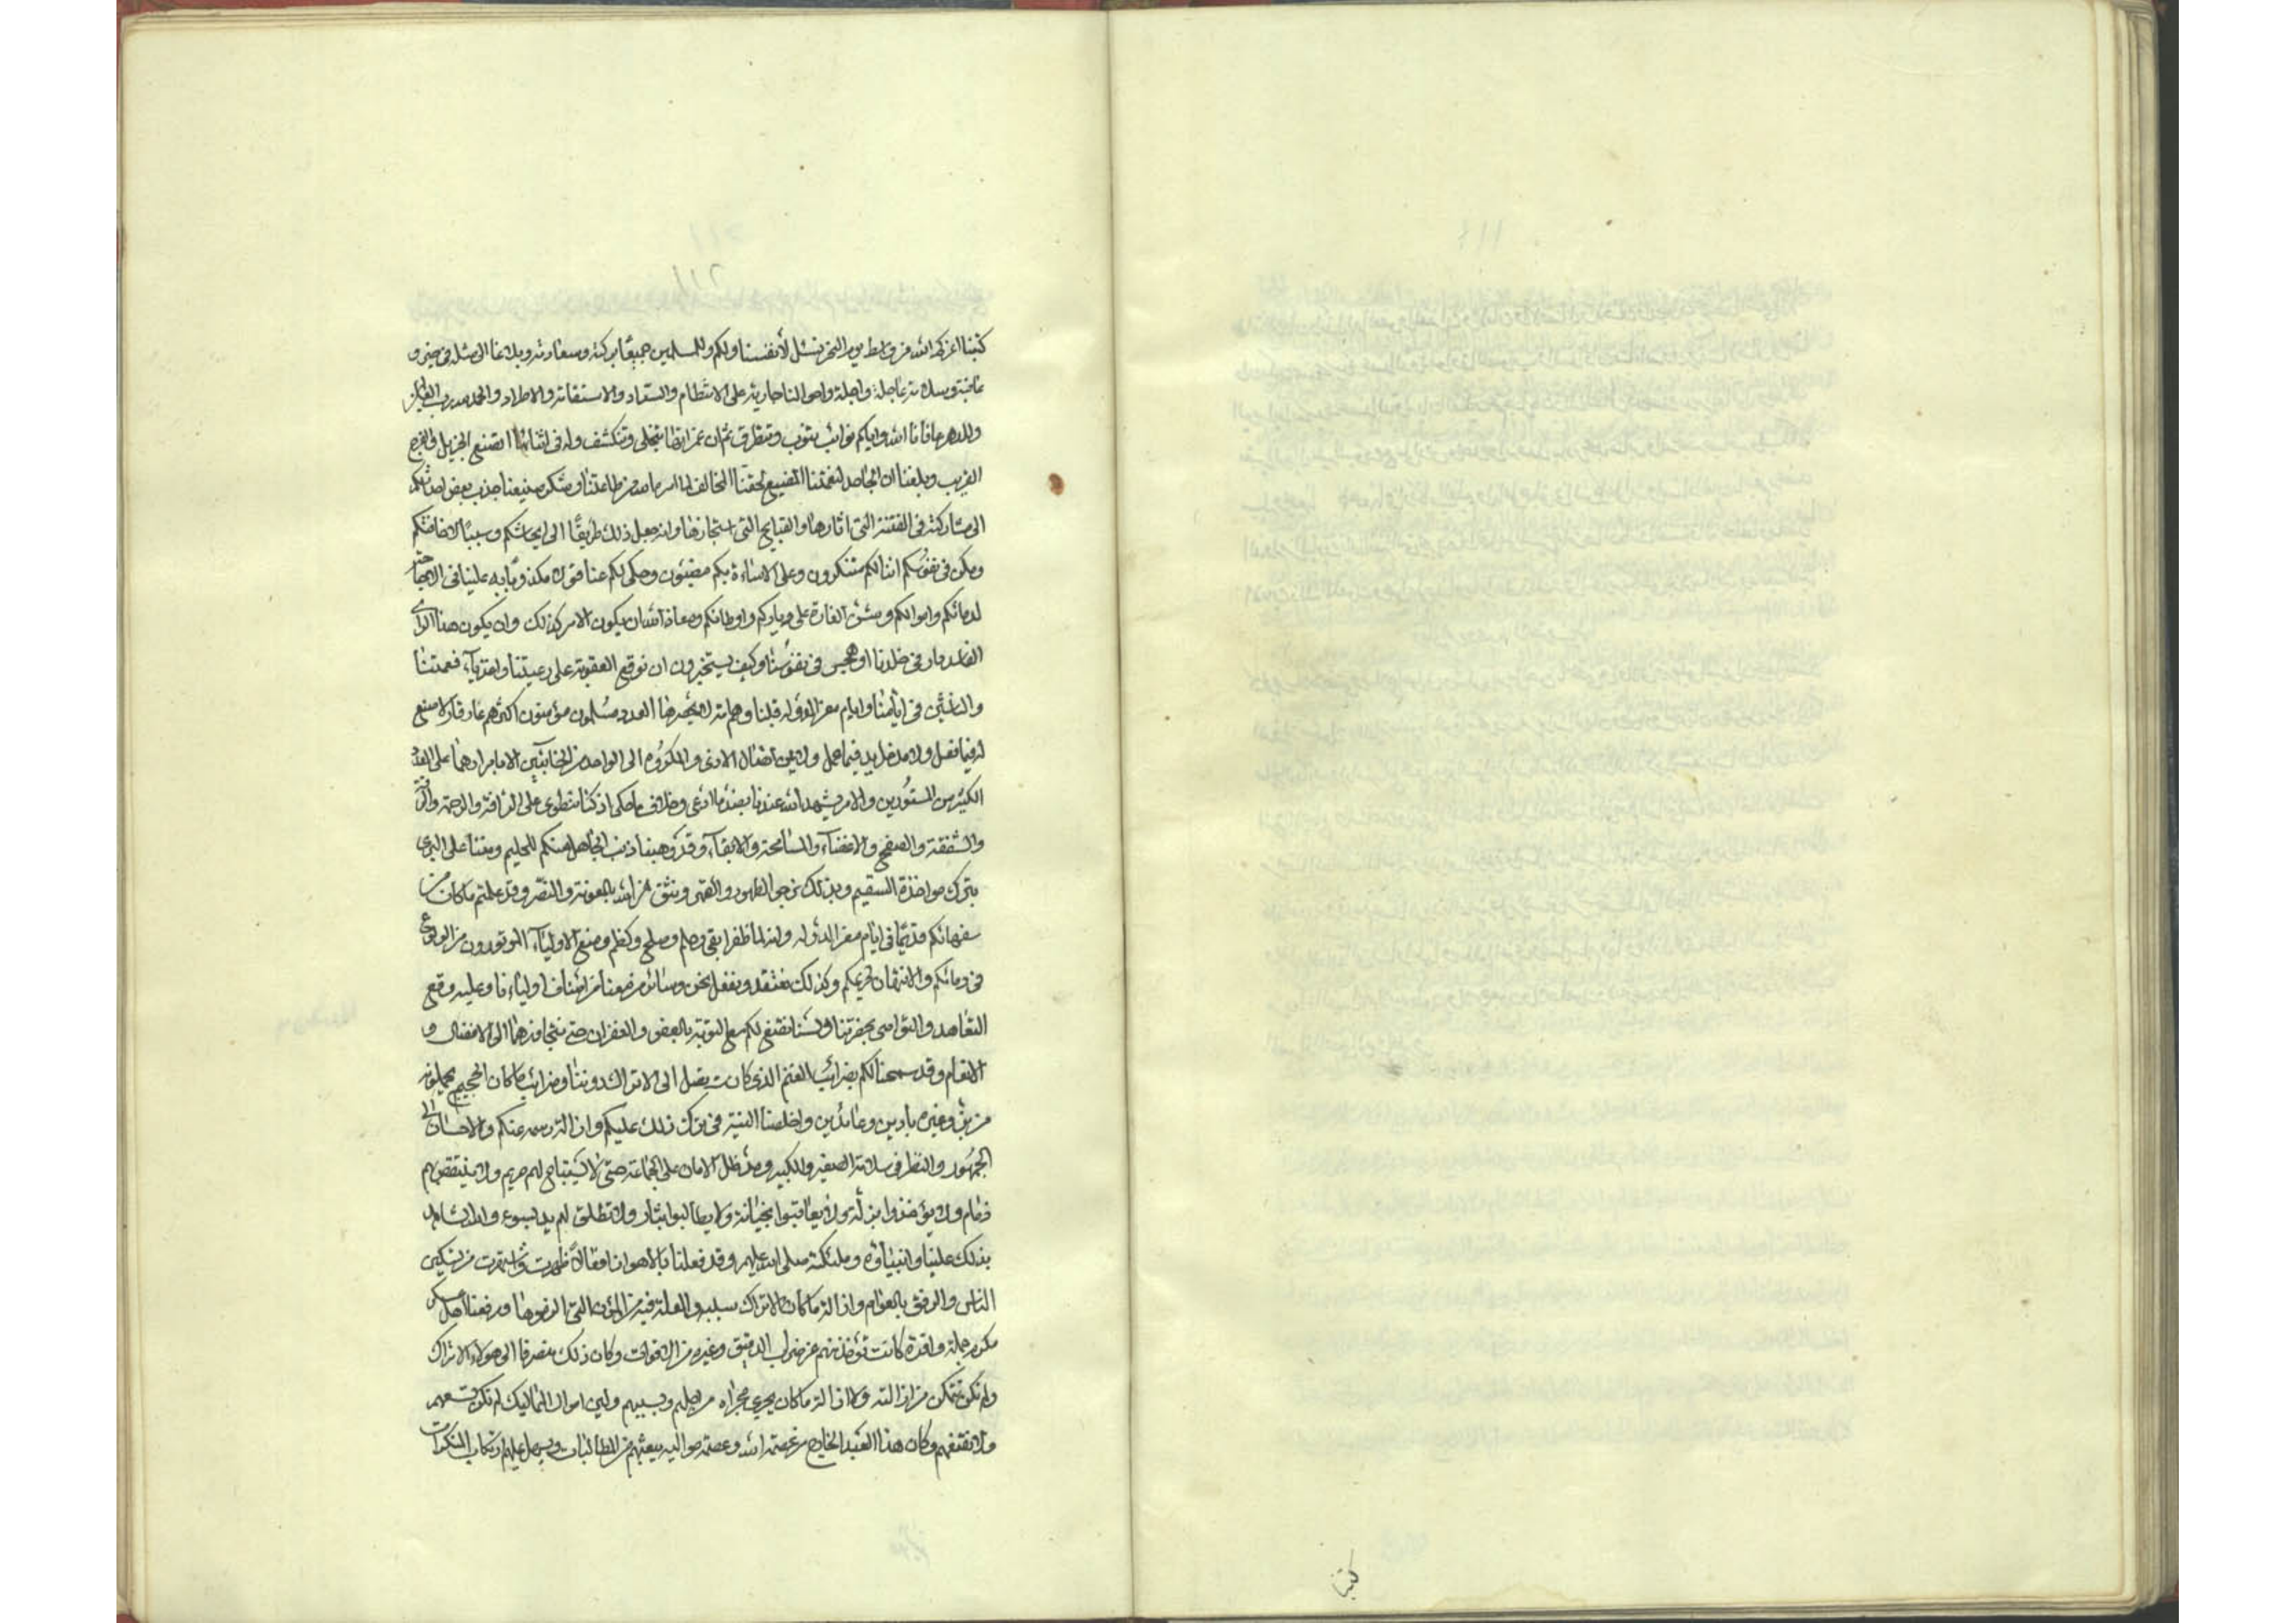 كتبنا اعزكم الله من واسط يوم النحر نسئل لأنفسنا ولكم وللمسلمين جميعًا بركته وسعادته وبلاغنا الى مثله في خير و
عافية وسلامة عاجلة واجلة واحوالنا جارية على الانتظام والسداد والاستقامة والاطراد والحمد لله رب العالمين
وللدهر عافانا الله واياكم نوائب تنوب وتتطرق ثم ان غمراتها تنجلي وتنكشف وله في اثنائها الصنع الجزيل والفرج
القريب وبلغنا ان الجاحد لنعمتنا المضيع لحقنا المخالف لما امر به من طاعتنا وشكر صنيعنا جذب بعض احداثكم
الى مشاركته في الفتنة التي اثارها والقبايح التي استجازها وانه جعل ذلك طريقًا الى ايحاشكم وسببًا لاخافتكم
ومكن في نفوسكم اننا لكم متنكرون وعلى الاساءة بكم مضبئون وحكى لكم عنا قولا مكذوبًا به علينا في الاباحة
لدمائكم واموالكم وشن الغارة على دياركم واوطانكم ومعاذ الله ان يكون الامر كذلك وان يكون هذا الرأى
الفاسد دار في خلدنا او هجس في نفوسنا وكيف يستخيرون ان نوقع العقوبة على رعيتنا
في ايامنا وايام معز الدولة قبلنا وعامة لا يحصرها العدد مسلمون مؤمنون اكثرهم
له فيما فعل ولا مدخل يد فيما عمل والمكروه الى الواحد من الخائنين الا
الكثير من المستورين والامر يشهد الله عندنا بضد ما ادعى وخلاف ما حكى اذ كنا ننطوى على الرأفة والرحمة
والشفقة والصفح والاغضاء والمسامحة والابقاء وقد وهبنا ذنب الجاهل منكم للحليم ومننا على البرى
بترك مواخذة السقيم وبذلك نرجوا الظهور ونثق من الله بالمعونة والنصر وقد علمتم ما كان من
سفهائكم قديمًا في ايام معز الدولة وانه لما ظفر ابقى وحلم وصفح وكظم ومنع الاولياء الموتورون من الولوغ
في دمائكم والانتهاك لحريمكم وكذلك نعتقد ونفعل نحن وسائر من معنا من اصناف اولياءنا وعليه وقع
التعاهد والتواصي بحضرتنا ولسنا نقتنع لكم مع التوبة بالعفو والغفران حتى نتجاوزهما الى الافضال و
الانعام وقد سمحنا لكم بضرائب الغنم الذي كانت يصل الى الاتراك دوننا وضرائب ما كان الحجيج يحملونه
من بز وغيره بادين وعائدين واخلصنا النية في ترك ذلك عليكم وازالة رسمه عنكم والاحسان الى
الجمهور والنظر في سلامة الصغير والكبير ومد ظل الامان على الجماعة حتى لا يستباح لهم حريم ولا ينتقض لهم
ذمام ولا يؤخذوا بزلة ولا يعاقبوا بخيانة ولا يطالبوا بثار ولا تطلق لهم يد بسوء والله الشاهد
بذلك علينا وانبياؤه وملئكته صلى الله عليهم وقد فعلنا بالاهواز افعالًا ظهرت واشتهرت من تسكين
الناس والرفق بالعوام وازالة ما كان الاتراك سببه والعلة فيه من المؤن التي الزموها ورفعنا اهل عسكر
مكرم جملة وافرة كانت تؤخذ منهم عن ضرايب الدقيق وغيره من الاقوات وكان ذلك منصرفا الى هولاء الاتراك
ولم نكن نتمكن من ازالته ولا ازالة ما كان يجرى مجراه من اجلهم وبسببهم ولان اموال الممالك لم تكن تسعهم
ولا تقنعهم وكان هذا العبد الخارج من عصمة الله وعصمة مواليه يبعثهم من المطالبات ويسهل عليهم ارتكاب المنكرات
كتبنا